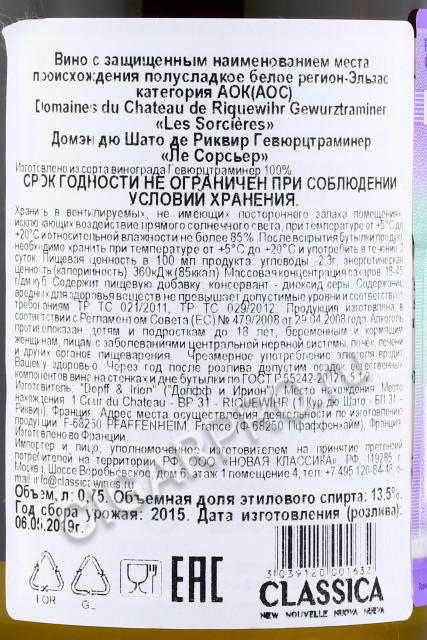 Вино с защищенным наименованием места
происхождения полусладкое белое регион-Эльзас
категория АОК(АОС)
Domaines du Chateau de Riquewihr Gewurztraminer
«Les Sorcières»
Домэн дю Шато де Риквир Гевюрцтраминер
«Ле Сорсьер»
Изготовлено из сорта винограда Гевюрцтраминер 100%
СРОК ГОДНОСТИ НЕ ОГРАНИЧЕН ПРИ СОБЛЮДЕНИИ
УСЛОВИЙ ХРАНЕНИЯ.
Хранить в вентилируемых, не имеющих постороннего запаха помещениях,
исключающих воздействие прямого солнечного света, при температуре от +5°С до
+20°С и относительной влажности не более 85%. После вскрытия бутылки продукт
необходимо хранить при температуре от +5°С до +20°С и употребить в течение 3
суток. Пищевая ценность в 100 мл продукта: углеводы -2,3г, энергетическая
ценность (калорийность) 360кДж (85ккал). Массовая концентрация сахаров 18-45
г/дм куб. Содержит пищевую добавку консервант - диоксид серы. Содержание
вредных для здоровья веществ не превышает допустимые уровни и соответствует
требованиям ТР ТС 021/2011, ТР ТС 029/2012. Продукция изготовлена в
соответствии с Регламентом Совета (ЕС) № 479/2008 от 29.04.2008 года. Алкоголь
противопоказан детям и подросткам до 18 лет, беременным и кормящим
женщинам, лицам с заболеваниями центральной нервной системы, почек, печени
и других органов пищеварения. Чрезмерное употребление алкоголя вредит
Вашему здоровью. Через год после розлива допустим осадок естественных
компонентов вина на стенках и дне бутылки по ГОСТ Р 55242-2012.
Изготовитель: "Dopff & Irion" ("Допфф и Ирион"). Место нахождения: Место
нахождения: 1 Cour du Chateau - BP 31 - RIQUEWIHR (1 Кур дю Шато - БП 31 -
Риквир), Франция. Адрес места осуществления деятельности по изготовлению
продукции: F-68250 PFAFFENHEIM, France (Ф-68250 Пфаффенхайм), Франция.
Изготовлено во Франции.
Импортер и лицо, уполномоченное изготовителем на принятие претензий
потребителей на территории РФ: ООО «НОВАЯ КЛАССИКА» РФ, 119285, г.
Москва, Шоссе Воробьевское, дом 6, этаж 1 помещение 4, тел. +7 495 120-84-48, e-
mail: info@classicawines.ru
Объем, л: 0,75. Объемная доля этилового спирта: 13,5%.
Год сбора урожая: 2015. Дата изготовления (розлива):
06.05.2019г.
FOR
GL
EAC
3 039120 001632
CLASSICA
NEW NOUVELLE NUOVA NUEVA